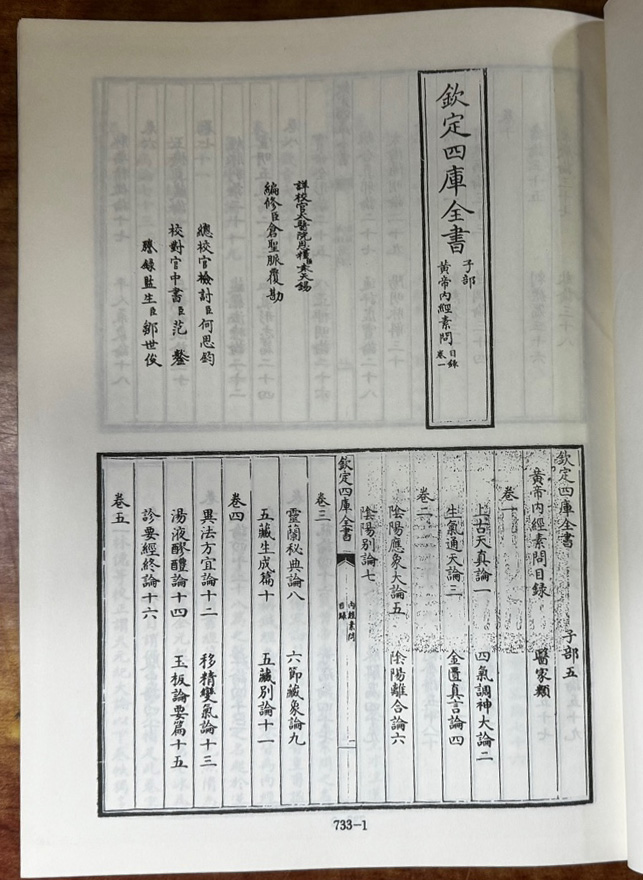 欽定四庫全書
子部
黃帝內經素問
目錄
卷一
編修臣倉聖脈覆勘
總校官檢討臣何思鈞
校對官中書臣范鏊
謄錄監生臣鄒世俊
欽定四庫全書 子部五
黃帝內經素問目錄 醫家類
卷一
上古天真論一 四氣調神大論二
生氣通天論三 金匱真言論四
卷二
陰陽應象大論五 陰陽離合論六
陰陽別論七
欽定四庫全書
內經素問
目錄
卷三
靈蘭秘典論八 六節藏象論九
五藏生成篇十 五藏別論十一
卷四
異法方宜論十二 移精變氣論十三
湯液醪醴論十四 玉板論要篇十五
診要經終論十六
卷五
733-1